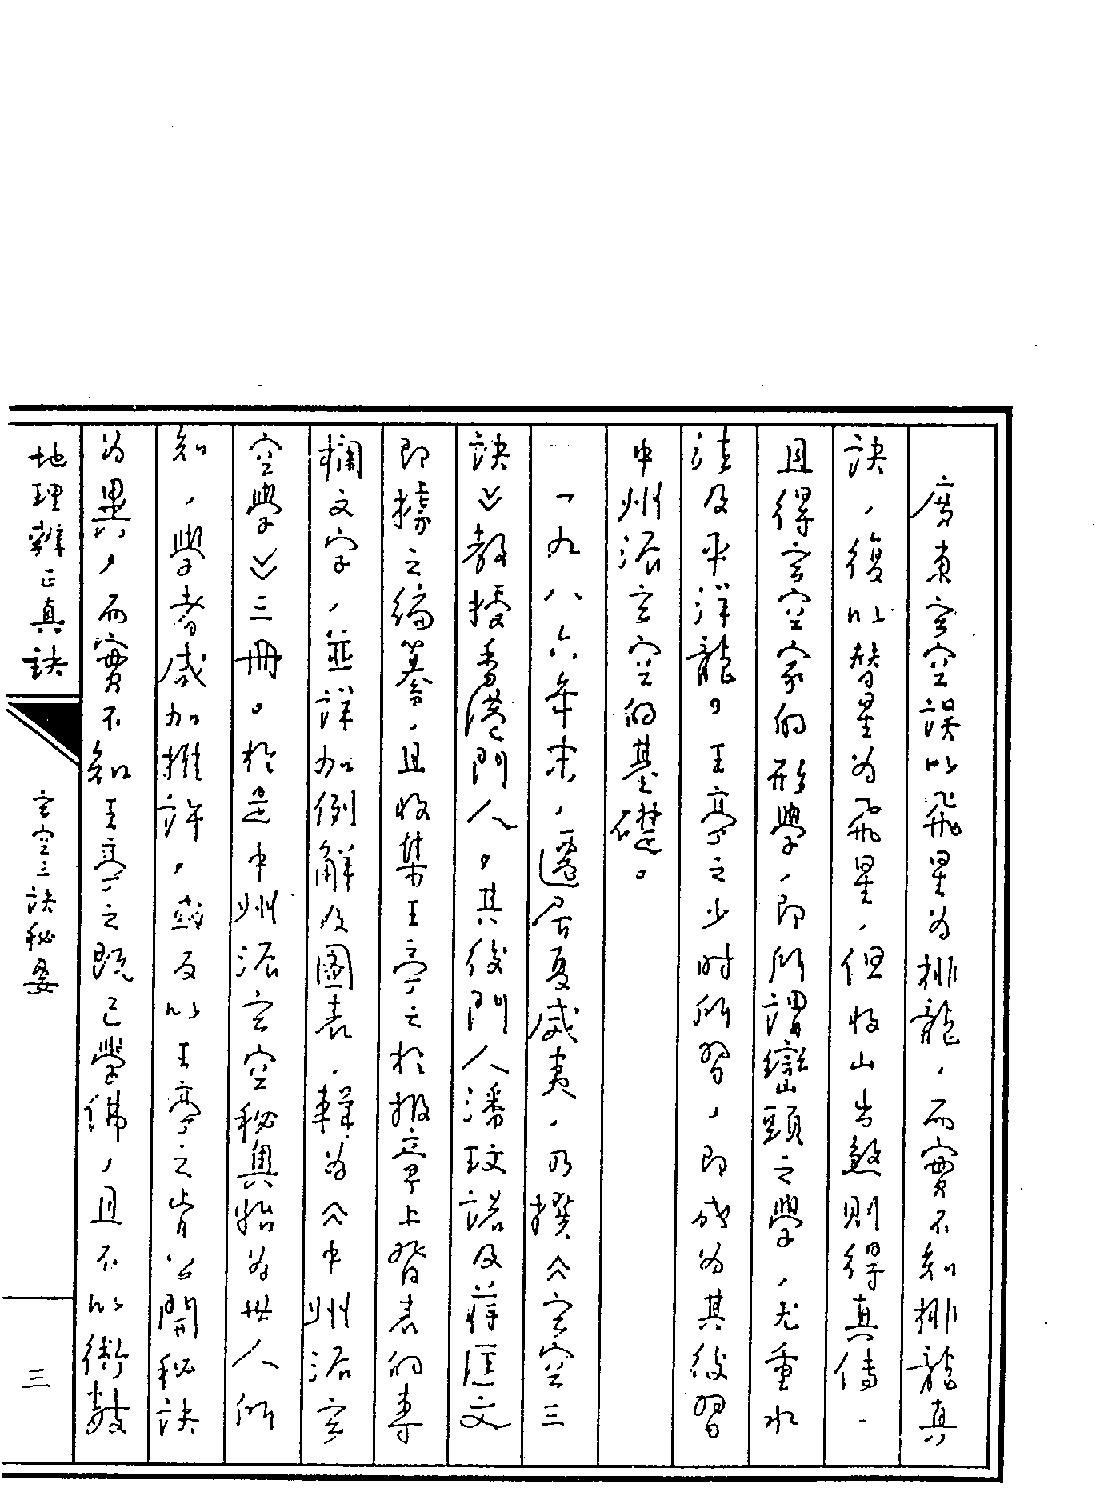 廣東玄空誤以飛星為排龍，而實不知排龍真
訣，復以替星為飛星，但收山出煞則得真傳，
且得玄空家的形學，即所謂巒頭之學，尤重水
法及平洋龍。王亭之少時所習，即成為其後習
中州派玄空的基礎。
一九八六年末，遷居夏威夷，乃撰《玄空三
訣》教授香港門人。其後門人潘玟諾及蔣匡文
即據之編纂，且收集王亭之於報章上發表的專
欄文字，並詳加例解及圖表，輯為《中州派玄
空學》三冊。於是中州派玄空秘奧始為世人所
知，學者咸加推許，或反以王亭之肯公開秘訣
為異，而實不知王亭之既已學佛，且不以術數
地理辨正真訣
玄空三訣秘要
三